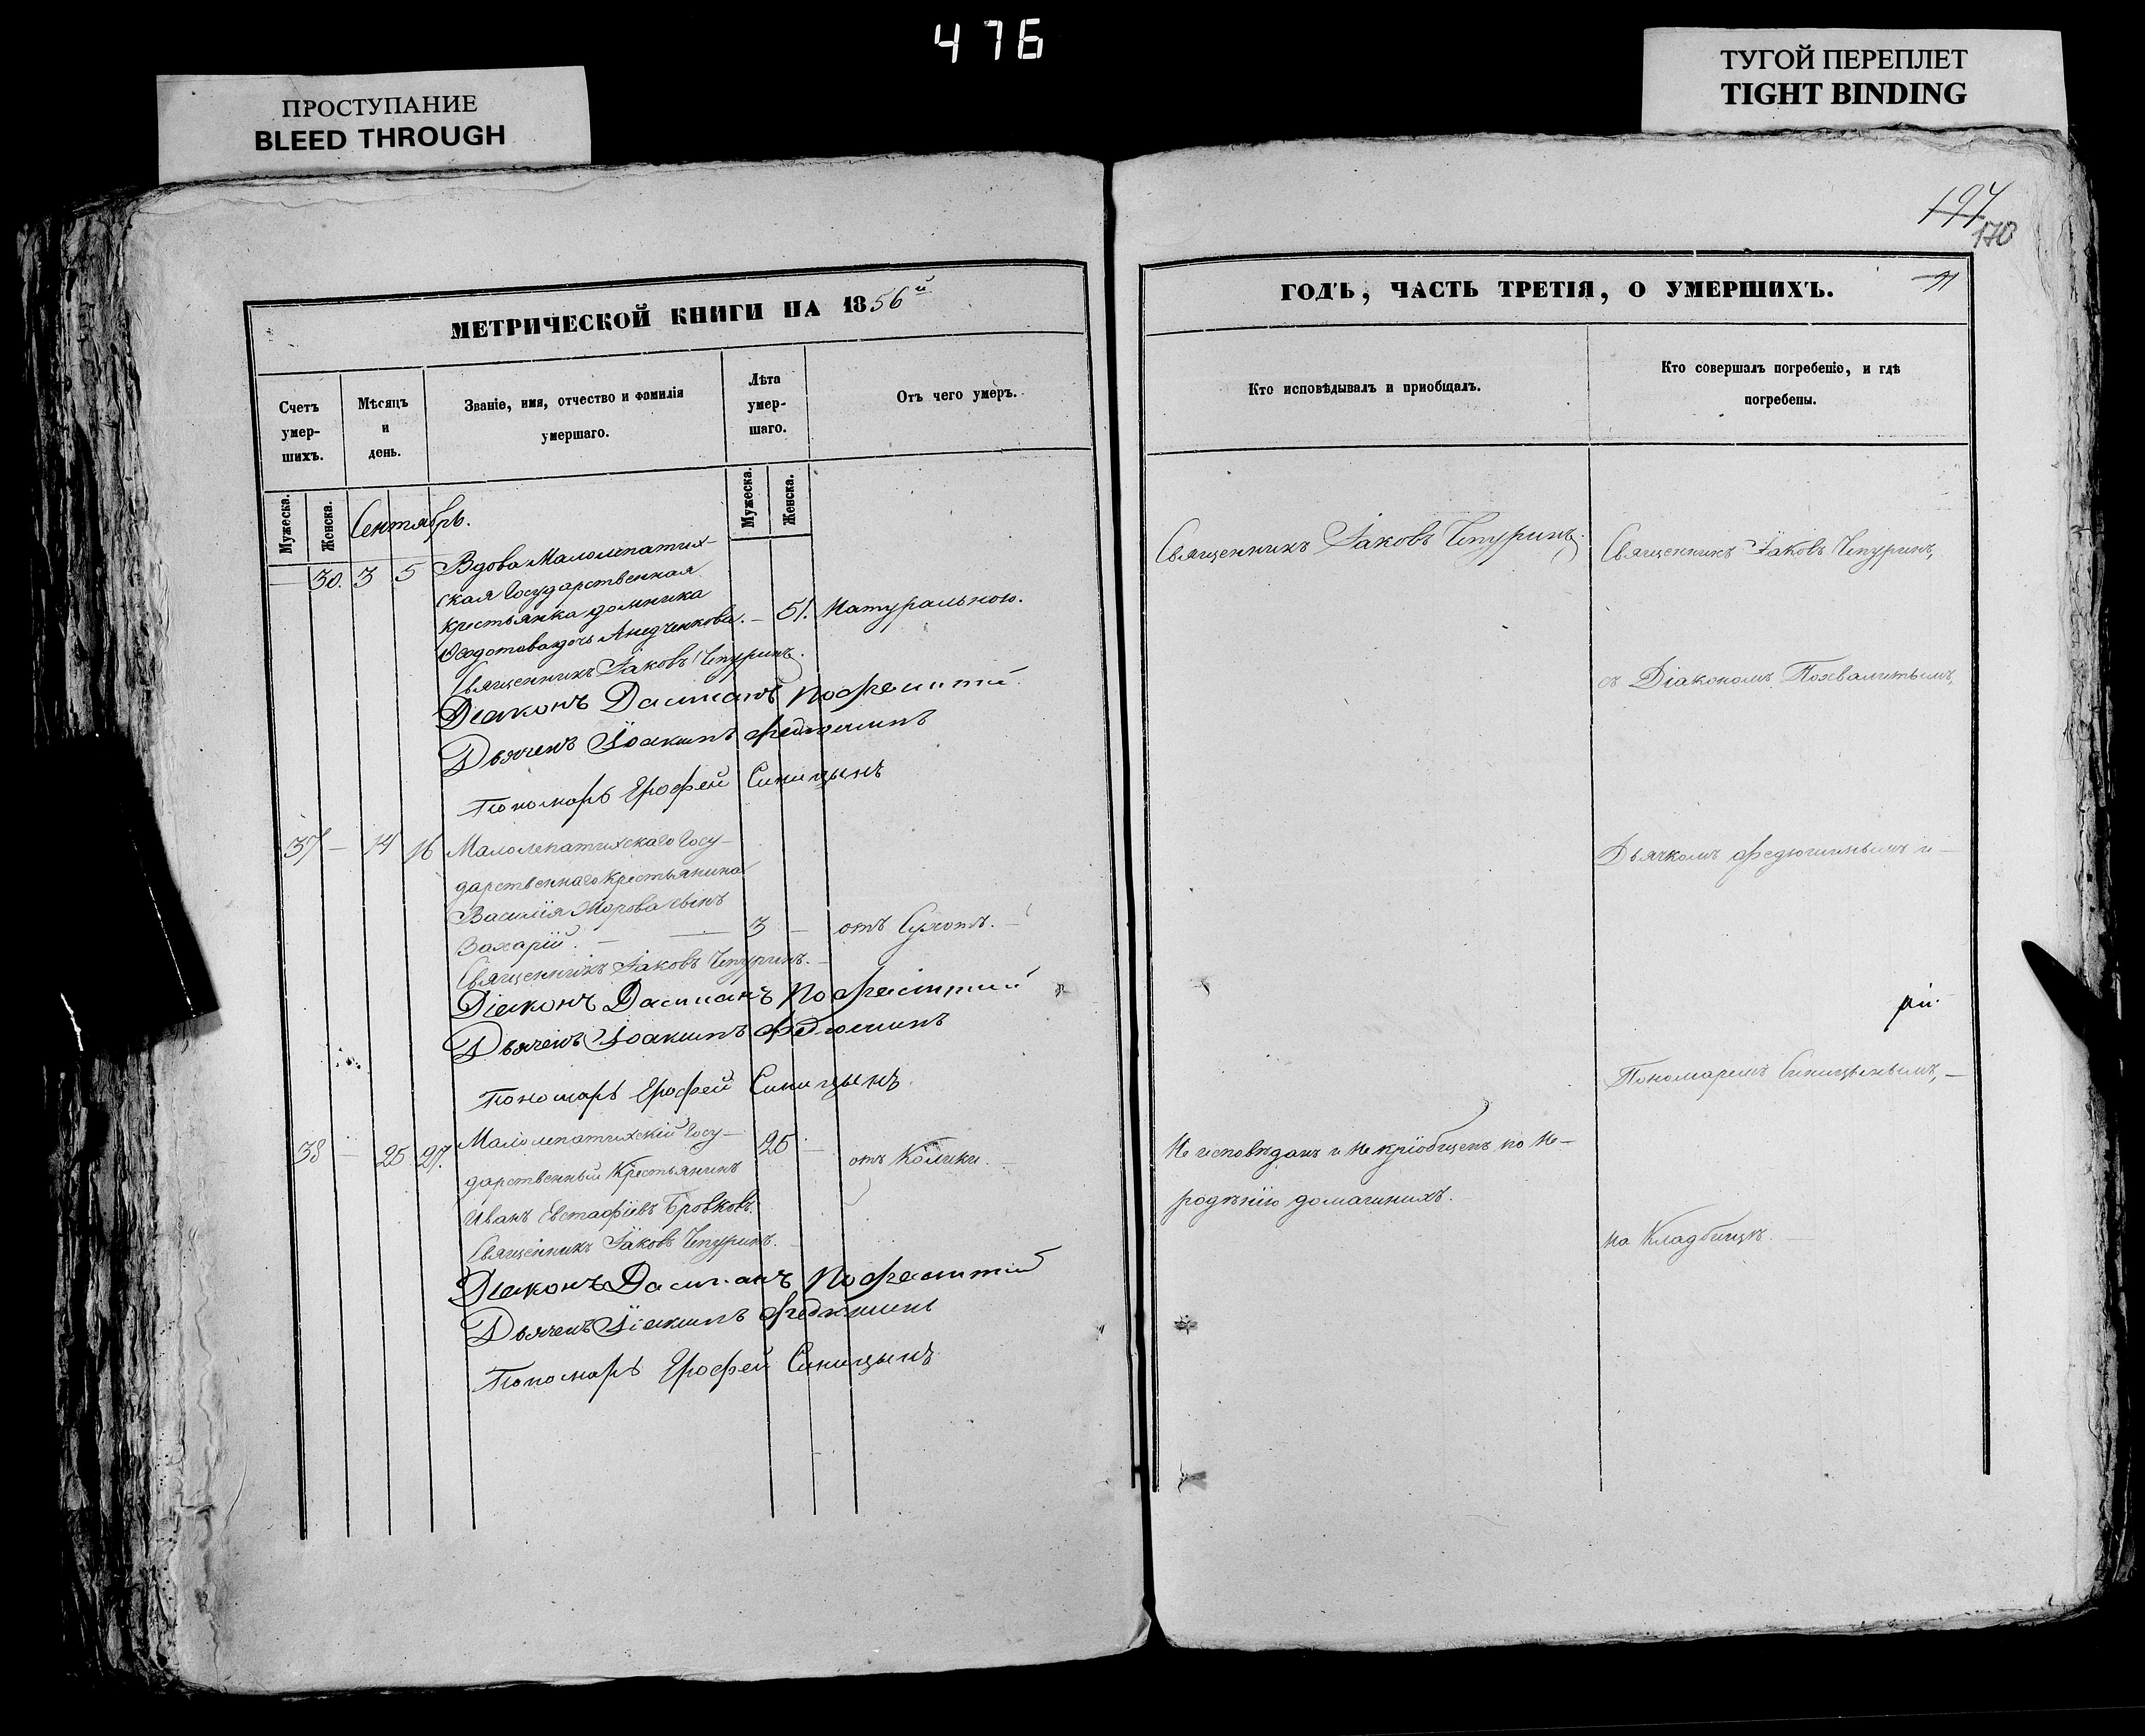 476
ПРОСТУПАНИЕ
BLEED THROUGH
ТУГОЙ ПЕРЕПЛЕТ
TIGHT BINDING
197
170
МЕТРИЧЕСКОЙ КНИГИ НА 1856й
Счетъ
умер-
шихъ.
Мѣсяцъ
и
день.
Званіе, имя, отчество и фамилія
умершаго.
Лѣта
умер-
шаго.
Отъ чего умеръ.
Мужеска.
Женска.
Мужеска.
Женска.
Сентябрь.
30. 3 5 Вдова Малолепатих-
ская Государственная
крестьянка Домника
Федотова дочь — 51. Натуральною.
Священникъ Іаковъ Чепуринъ.
Діаконъ Дамианъ
Дьячекъ Іоакимъ Федюшинъ
Пономарь Ерофей Синицынъ
37 — 14 16 Малолепатихскаго Госу-
дарственнаго крестьянина
Василія Морова сынъ
Захарій. — 3 — отъ Сухотъ.
Священникъ Іаковъ Чепуринъ.
Діаконъ Дамианъ
Дьячекъ Іоакимъ Федюшинъ
Пономарь Ерофей Синицынъ.
38 — 25 27. Малолепатихскій Госу- 25 — отъ Колики.
дарственный Крестьянинъ
Иванъ Евстафіевъ Бровковъ.
Священникъ Іаковъ Чепуринъ.
Діаконъ Дамианъ
Дьячекъ Іоакимъ Федюшинъ
Пономарь Ерофей Синицынъ
ГОДЪ, ЧАСТЬ ТРЕТІЯ, О УМЕРШИХЪ.
Кто исповѣдывалъ и приобщалъ.
Кто совершалъ погребеніе, и гдѣ
погребены.
Священникъ Іаковъ Чепуринъ.
Священникъ Іаковъ Чепуринъ,
съ Діакономъ Похвалитымъ,
Дьячкомъ Федюшинымъ и —
Пономаремъ Синицынымъ, —
Не исповѣданъ и не пріобщенъ по не-
родѣнію домашнихъ.
на Кладбищѣ.